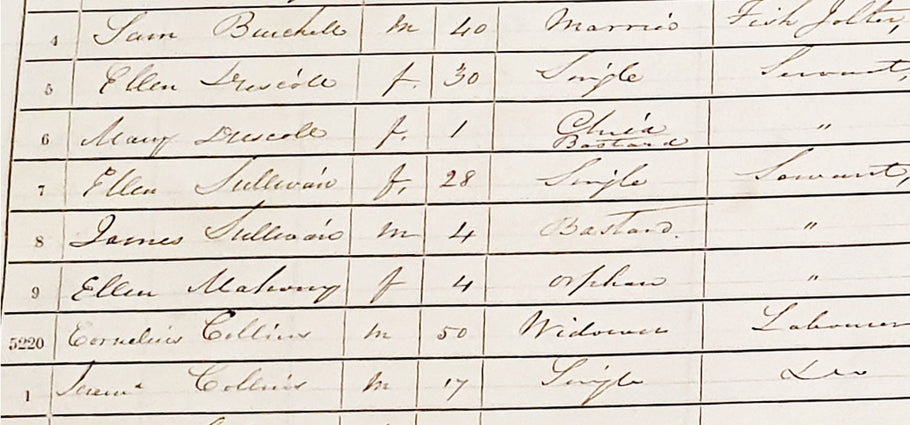 4 Sam Burchell m 40 Married Fish Jolter,
5 Ellen Driscole f. 30 Single Servant,
6 Mary Driscole f. 1 Child Bastard "
7 Ellen Sullivan f, 28 Single Servant,
8 James Sullivan m 4 Bastard. "
9 Ellen Mahony f 4 orphan "
5220 Cornelius Collins m 50 Widower Labourer
1 Jeremh Collins m 17 Single Do